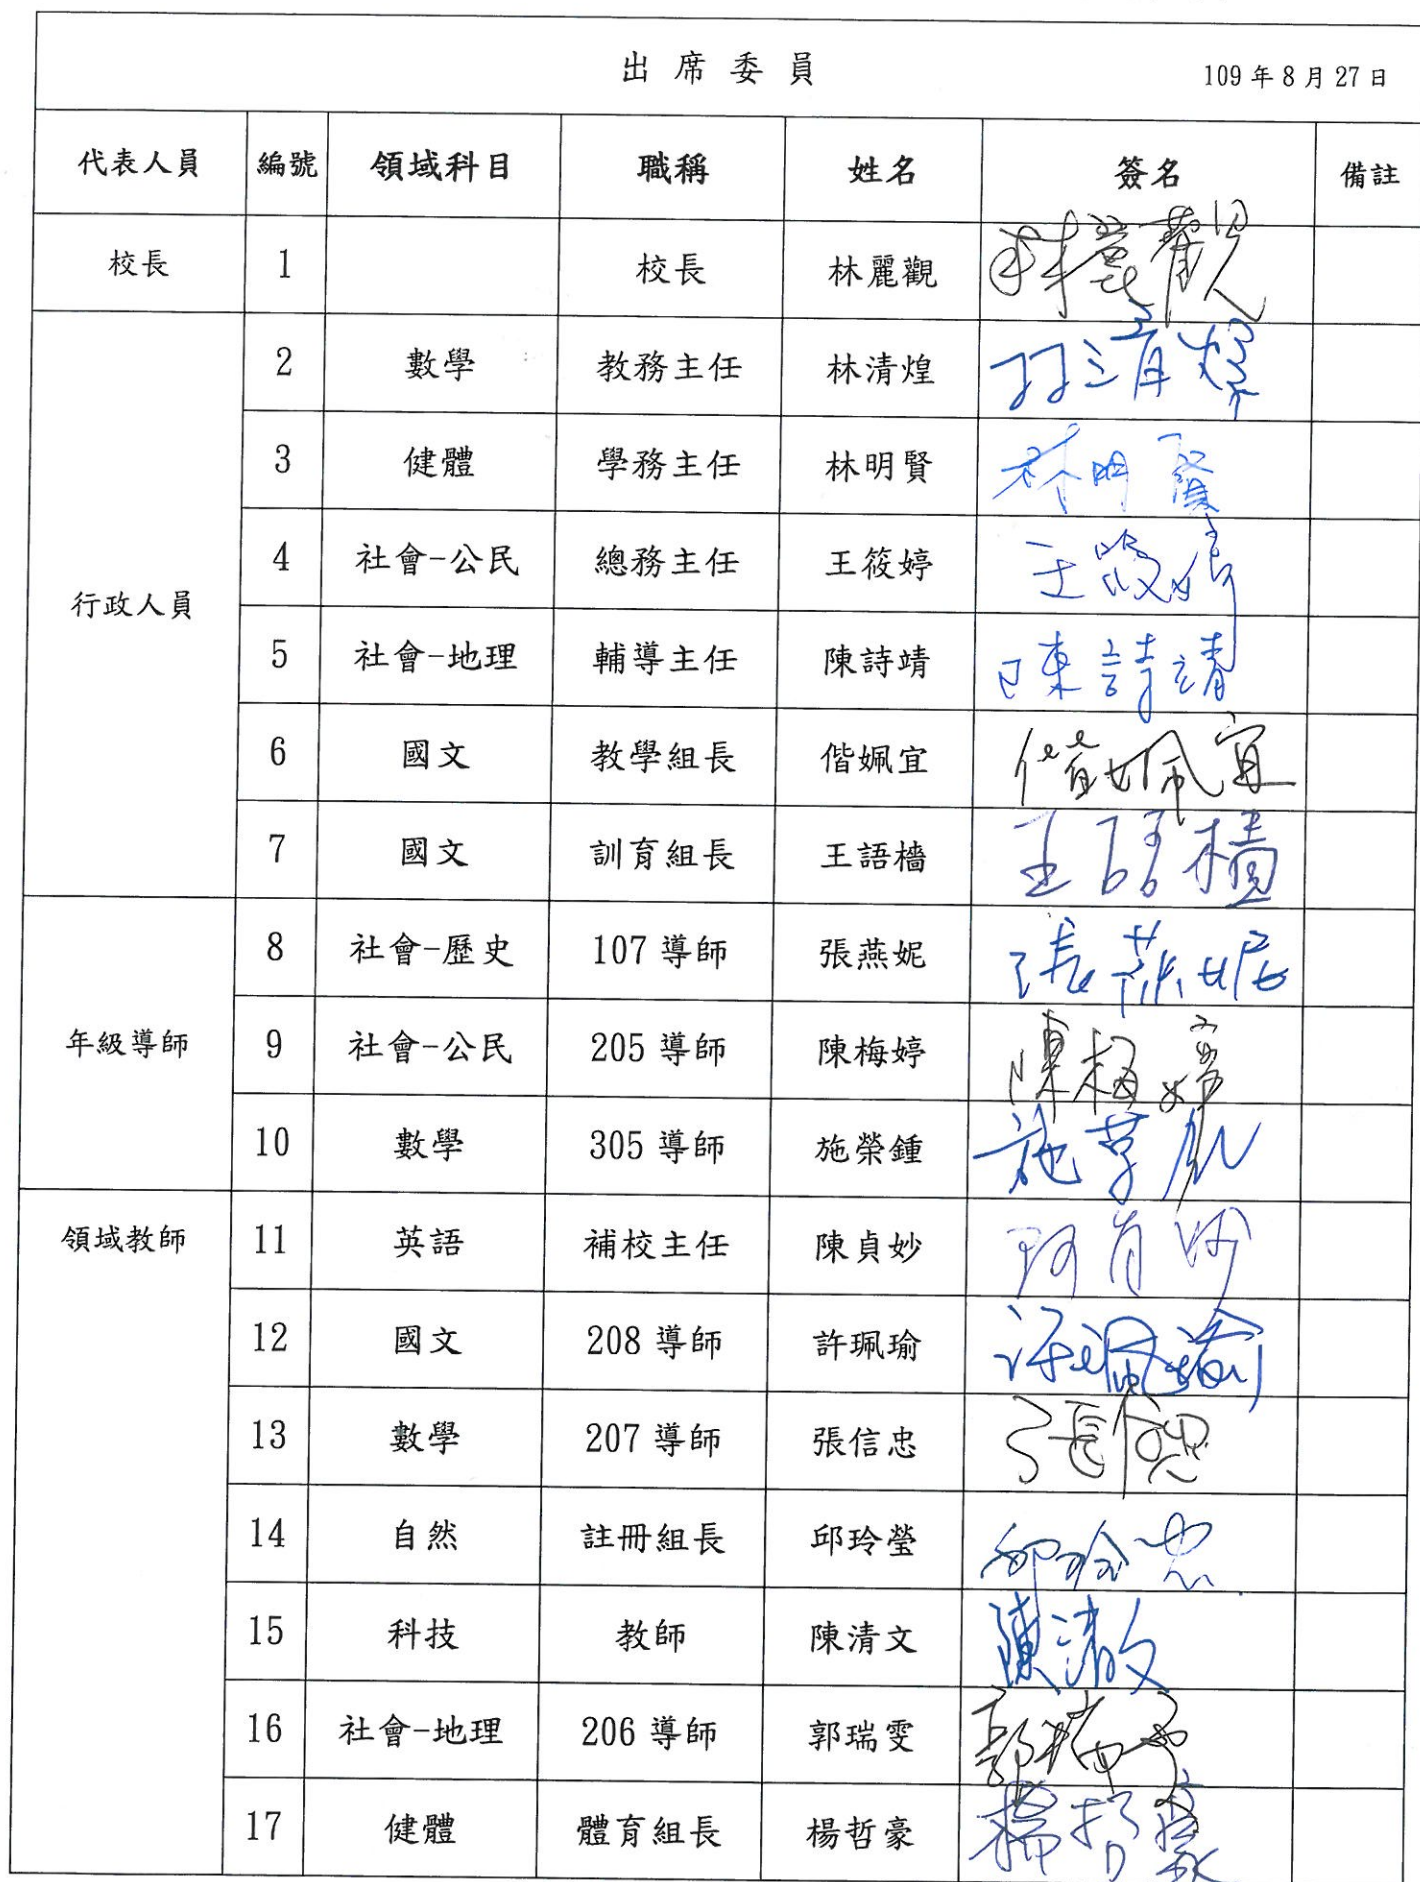 出席委員 109年8月27日
代表人員 編號 領域科目 職稱 姓名 簽名 備註
校長 1 校長 林麗觀 林麗觀
行政人員
2 數學 教務主任 林清煌 林清煌
3 健體 學務主任 林明賢 林明賢
4 社會-公民 總務主任 王筱婷 王筱婷
5 社會-地理 輔導主任 陳詩靖 陳詩靖
6 國文 教學組長 偕姵宜 偕姵宜
7 國文 訓育組長 王語檣 王語檣
年級導師
8 社會-歷史 107導師 張燕妮 張燕妮
9 社會-公民 205導師 陳梅婷 陳梅婷
10 數學 305導師 施榮鍾 施榮
領域教師
11 英語 補校主任 陳貞妙 陳貞妙
12 國文 208導師 許珮瑜 許珮瑜
13 數學 207導師 張信忠 張信忠
14 自然 註冊組長 邱玲瑩 邱玲
15 科技 教師 陳清文 陳清文
16 社會-地理 206導師 郭瑞雯 郭瑞雯
17 健體 體育組長 楊哲豪 楊哲豪